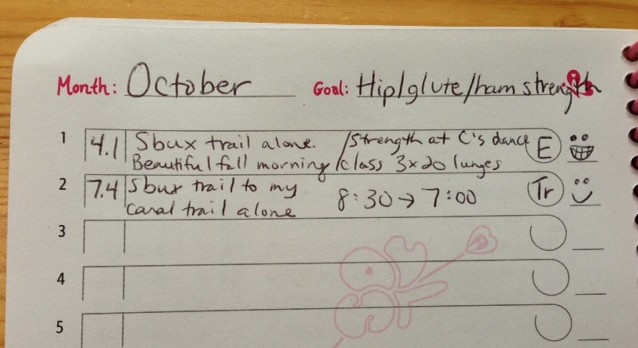 Month: October Goal: Hip/glute/ham strength
1 4.1 Sbux trail alone. /Strength at C's dance E
Beautiful fall morning /class 3x20 lunges
2 7.4 Sbux trail to my 8:30→7:00 Tr
canal trail alone
3
4
5